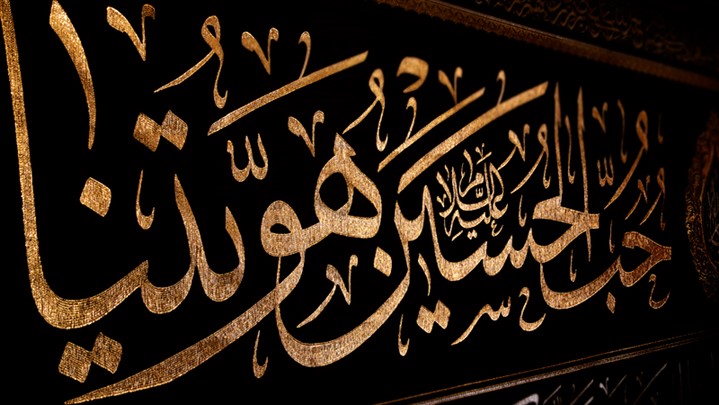 حُبُّ الحسين عليه السلام هويّتنا